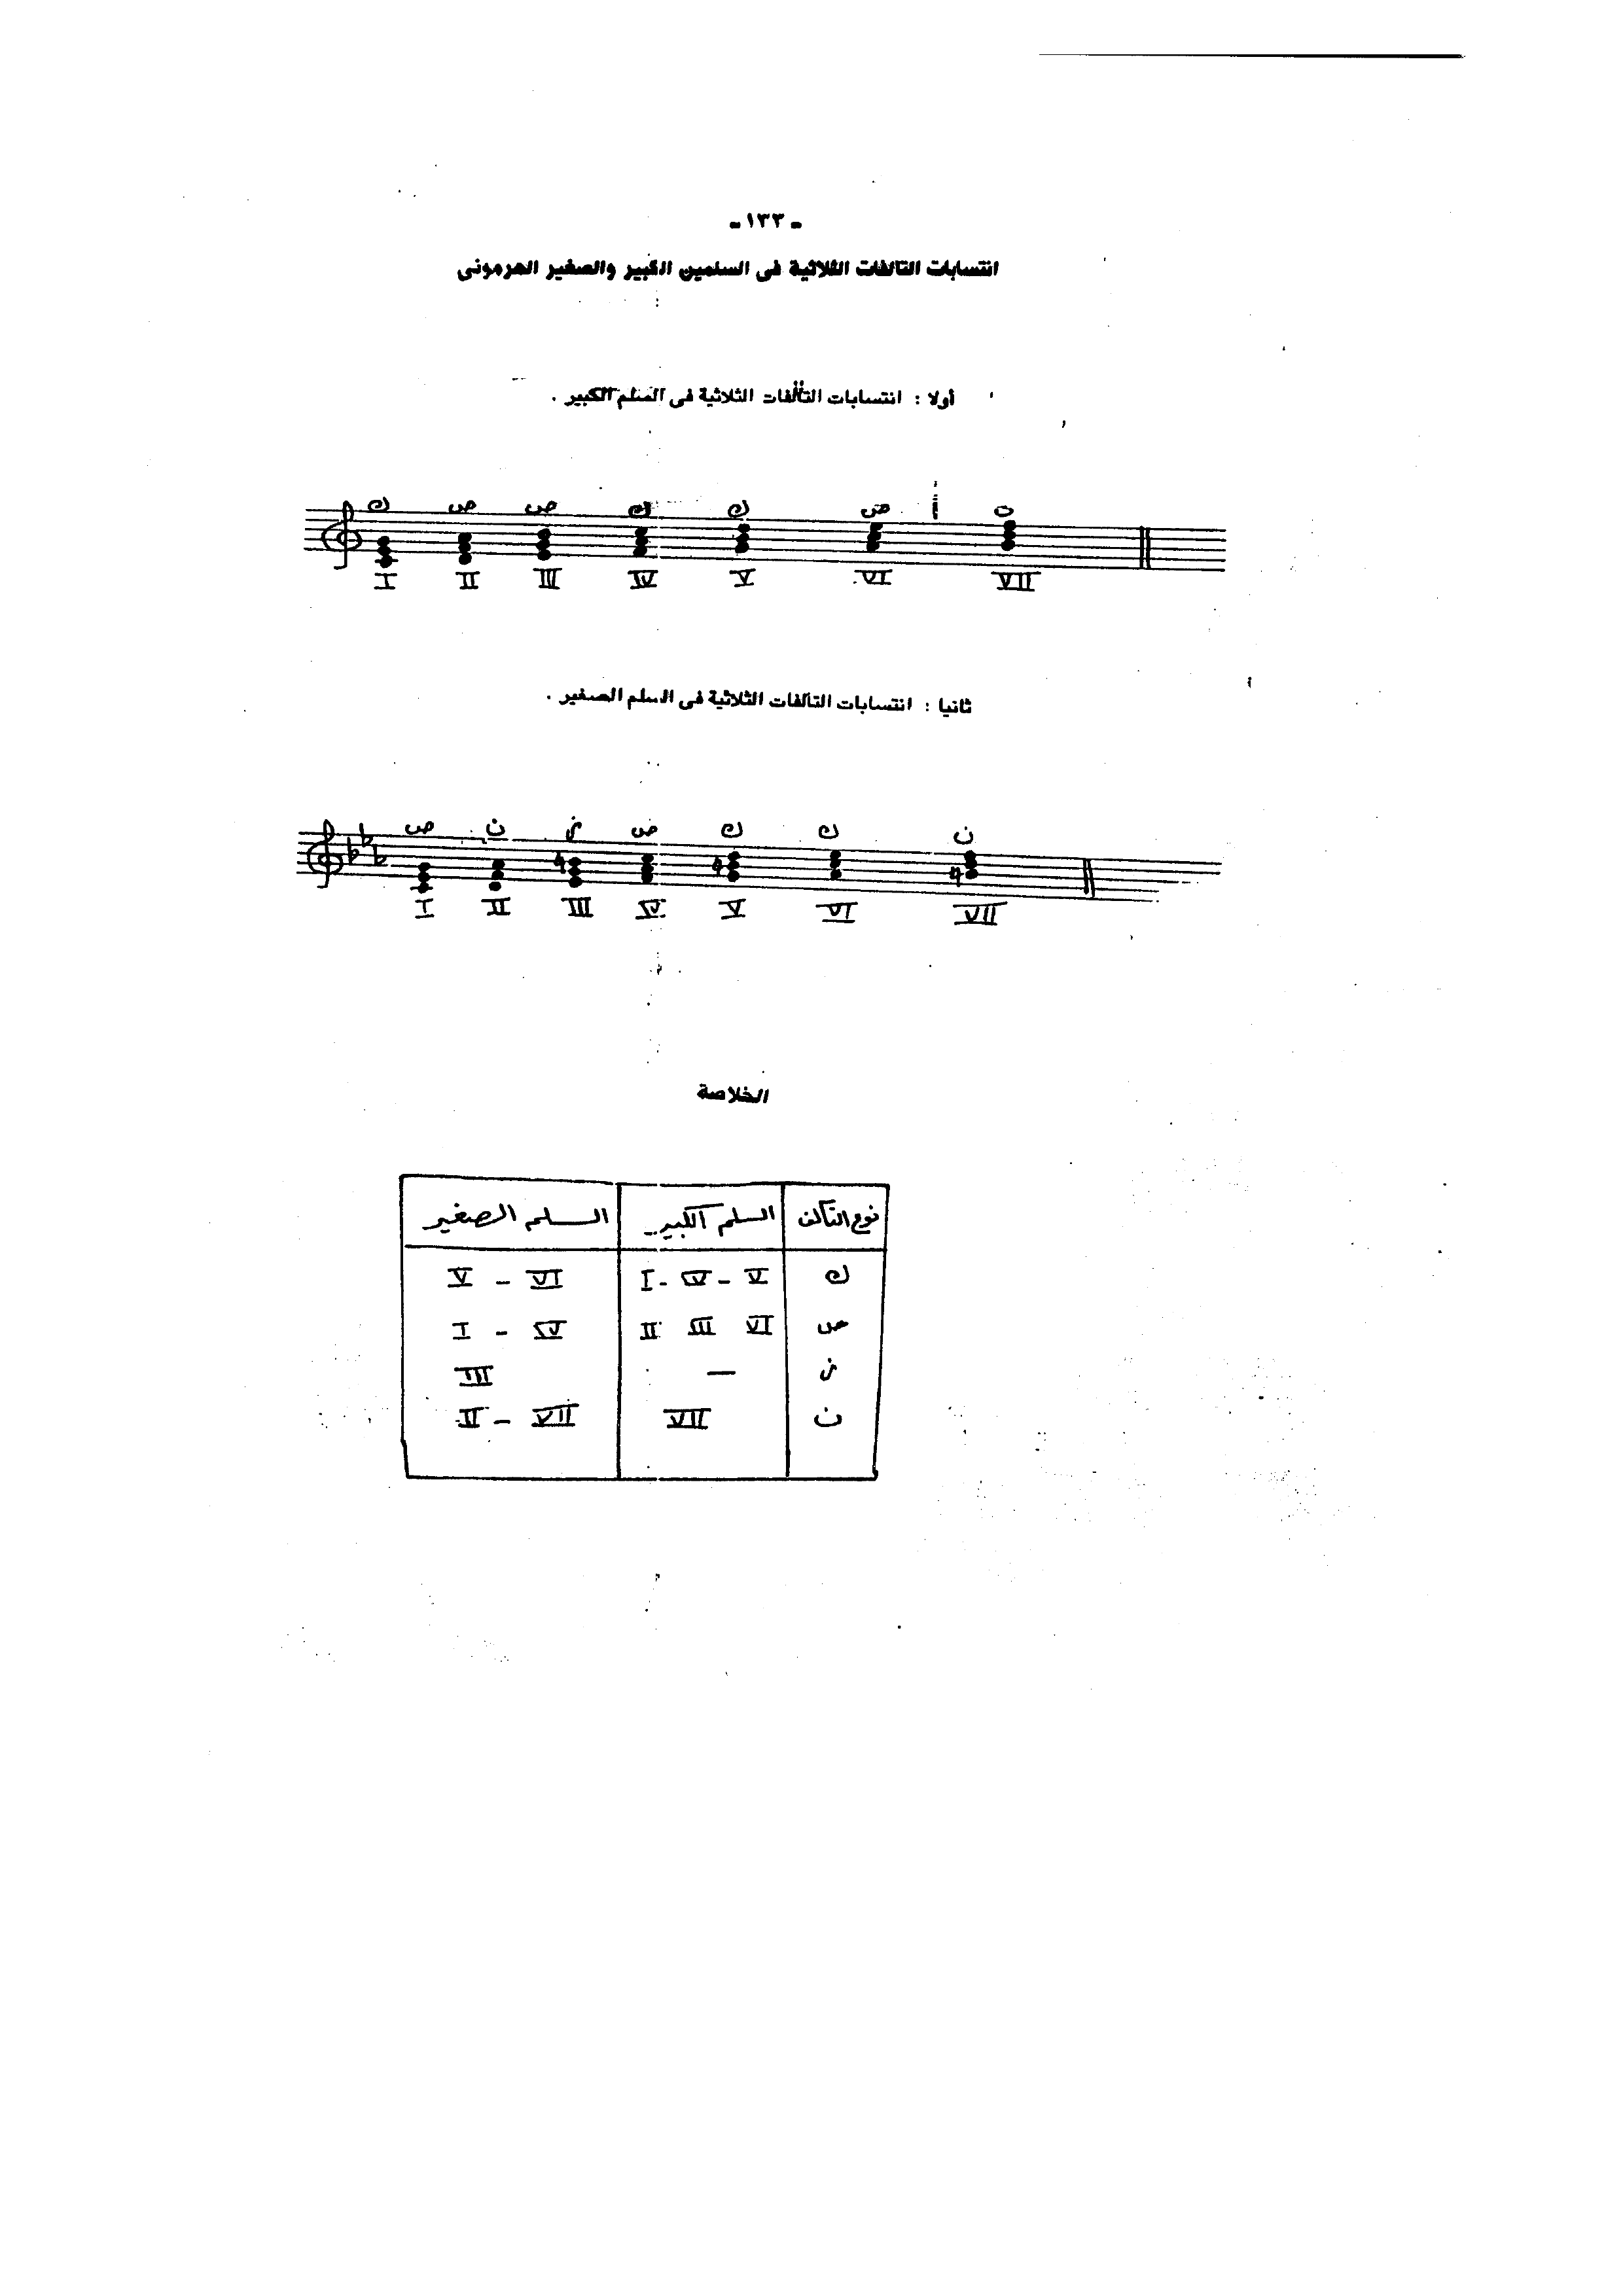 - ١٣٣ -
انتسابات التالفات الثلاثية فى السلمين الكبير والصغير الهرمونى
أولا : انتسابات التألفات الثلاثية فى السلم الكبير .
ك ص ص ك ك ص ن
I II III IV V VI VII
ثانيا : انتسابات التالفات الثلاثية فى السلم الصغير .
ص ن ز ص ك ك ن
I II III IV V VI VII
الخلاصة
نوع التآلف السلم الكبير السلم الصغير
ك I - IV - V V - VI
ص II III VI I - IV
ز — III
ن VII II - VII